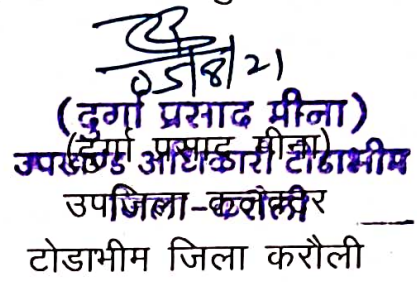 05/8/21
(दुर्गा प्रसाद मीना)
(दुर्गा प्रसाद मीना)
उपखण्ड अधिकारी टोडाभीम
उपजिला कलेक्टर
जिला-करौली
टोडाभीम जिला करौली